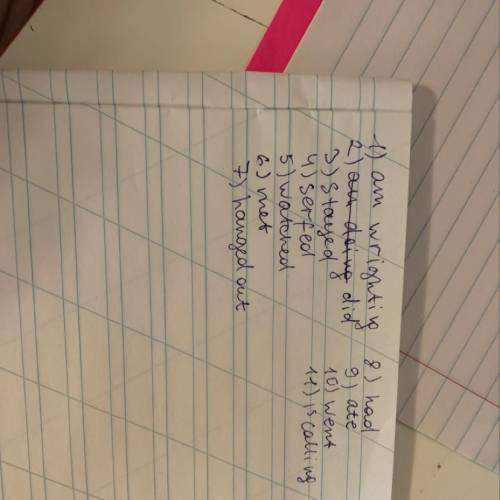 1) am wrighting
2) am doing did
3) stayed
4) serfed
5) watched
6) met
7) hanged out
8) had
9) ate
10) went
11) is calling